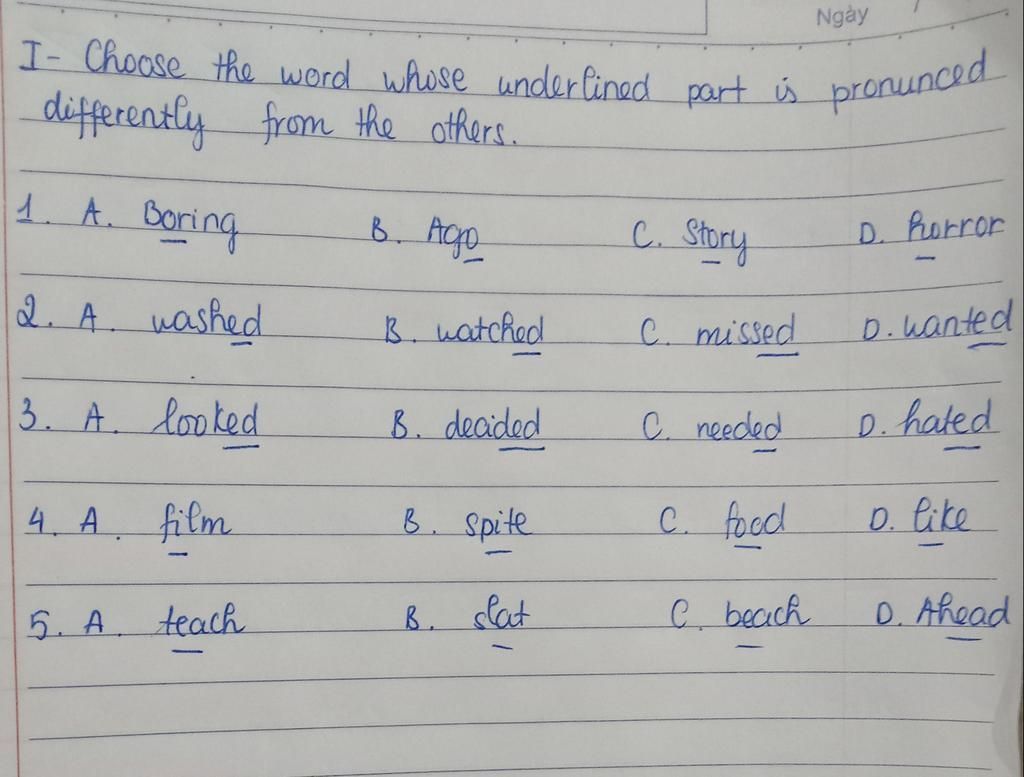 Ngày
I- Choose the word whose underlined part is pronunced
differently from the others.
1. A. Boring B. Ago C. Story D. horror
2. A. washed B. watched C. missed D. wanted
3. A. looked B. decided C. needed D. hated
4. A. film B. spite C. food D. like
5. A. teach B. slat C. beach D. Ahead